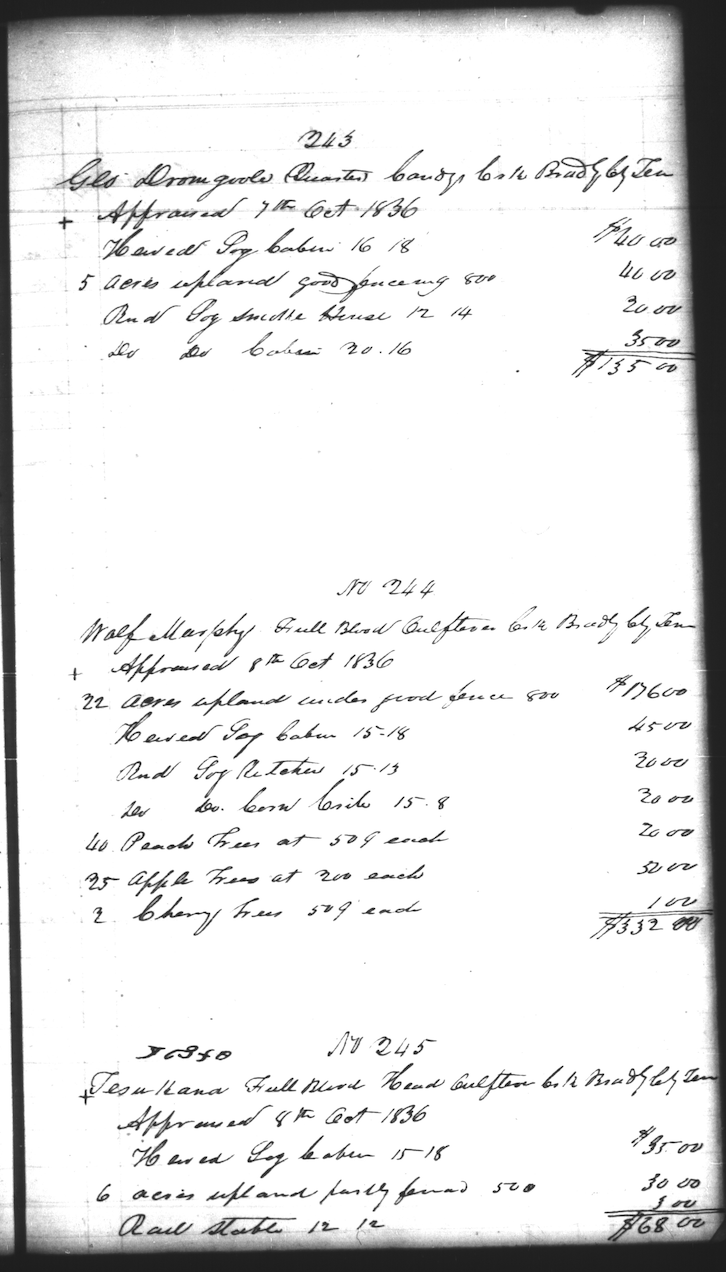 243
Geo Dromgoole Quarter Candys Crk Bradly Cty Ten
+ Appraised 7th Oct 1836
Hewed Log Cabin 16 18 $40 00
5 acres upland good fenceing 800 40 00
Rnd Log Smoke House 12 14 20 00
Do Do Cabin 20.16 35 00
$135 00
No 244
Wolf Murphy Full Blood Bradly Cty Ten
+ Appraised 8th Oct 1836
22 acres upland under good fence 800 $176 00
Hewed Log Cabin 15-18 45 00
Rnd Log Kitchen 15-13 20 00
Do Do. Corn Crib 15.8 20 00
40 Peach Trees at 50¢ each 20 00
25 Apple Trees at 200 each 50 00
2 Cherry Trees 50¢ each 1 00
$332 00
No 245
+ Tesukana Full Blood Head Crk Bradly Cty Ten
Appraised 8th Oct 1836
Hewed Log Cabin 15-18 $35 00
6 acres upland partly fenced 500 30 00
Rail stable 12 12 3 00
$68 00